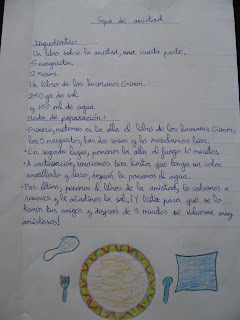 Sopa de amistad
Ingredientes:
Un libro sobre la amistad, una cuarta parte.
5 margaritas.
2 rosas.
Un libro de los hermanos Grimm.
250 gr de sal
y 150 ml de agua.
Modo de preparación:
• Primero, metemos en la olla el libro de los hermanos Grimm,
las 5 margaritas, las dos rosas y lo mezclamos bien.
• En segundo lugar, ponemos la olla al fuego 10 minutos.
• A continuación, removemos bien hasta que tenga un color
amarillento y claro, después le ponemos el agua.
• Por último, ponemos el libro de la amistad, lo volvemos a
remover y le añadimos la sal. ¡Y lista para que se lo
tomen tus amigos y después de 3 minutos se volverán muy
amistosos!